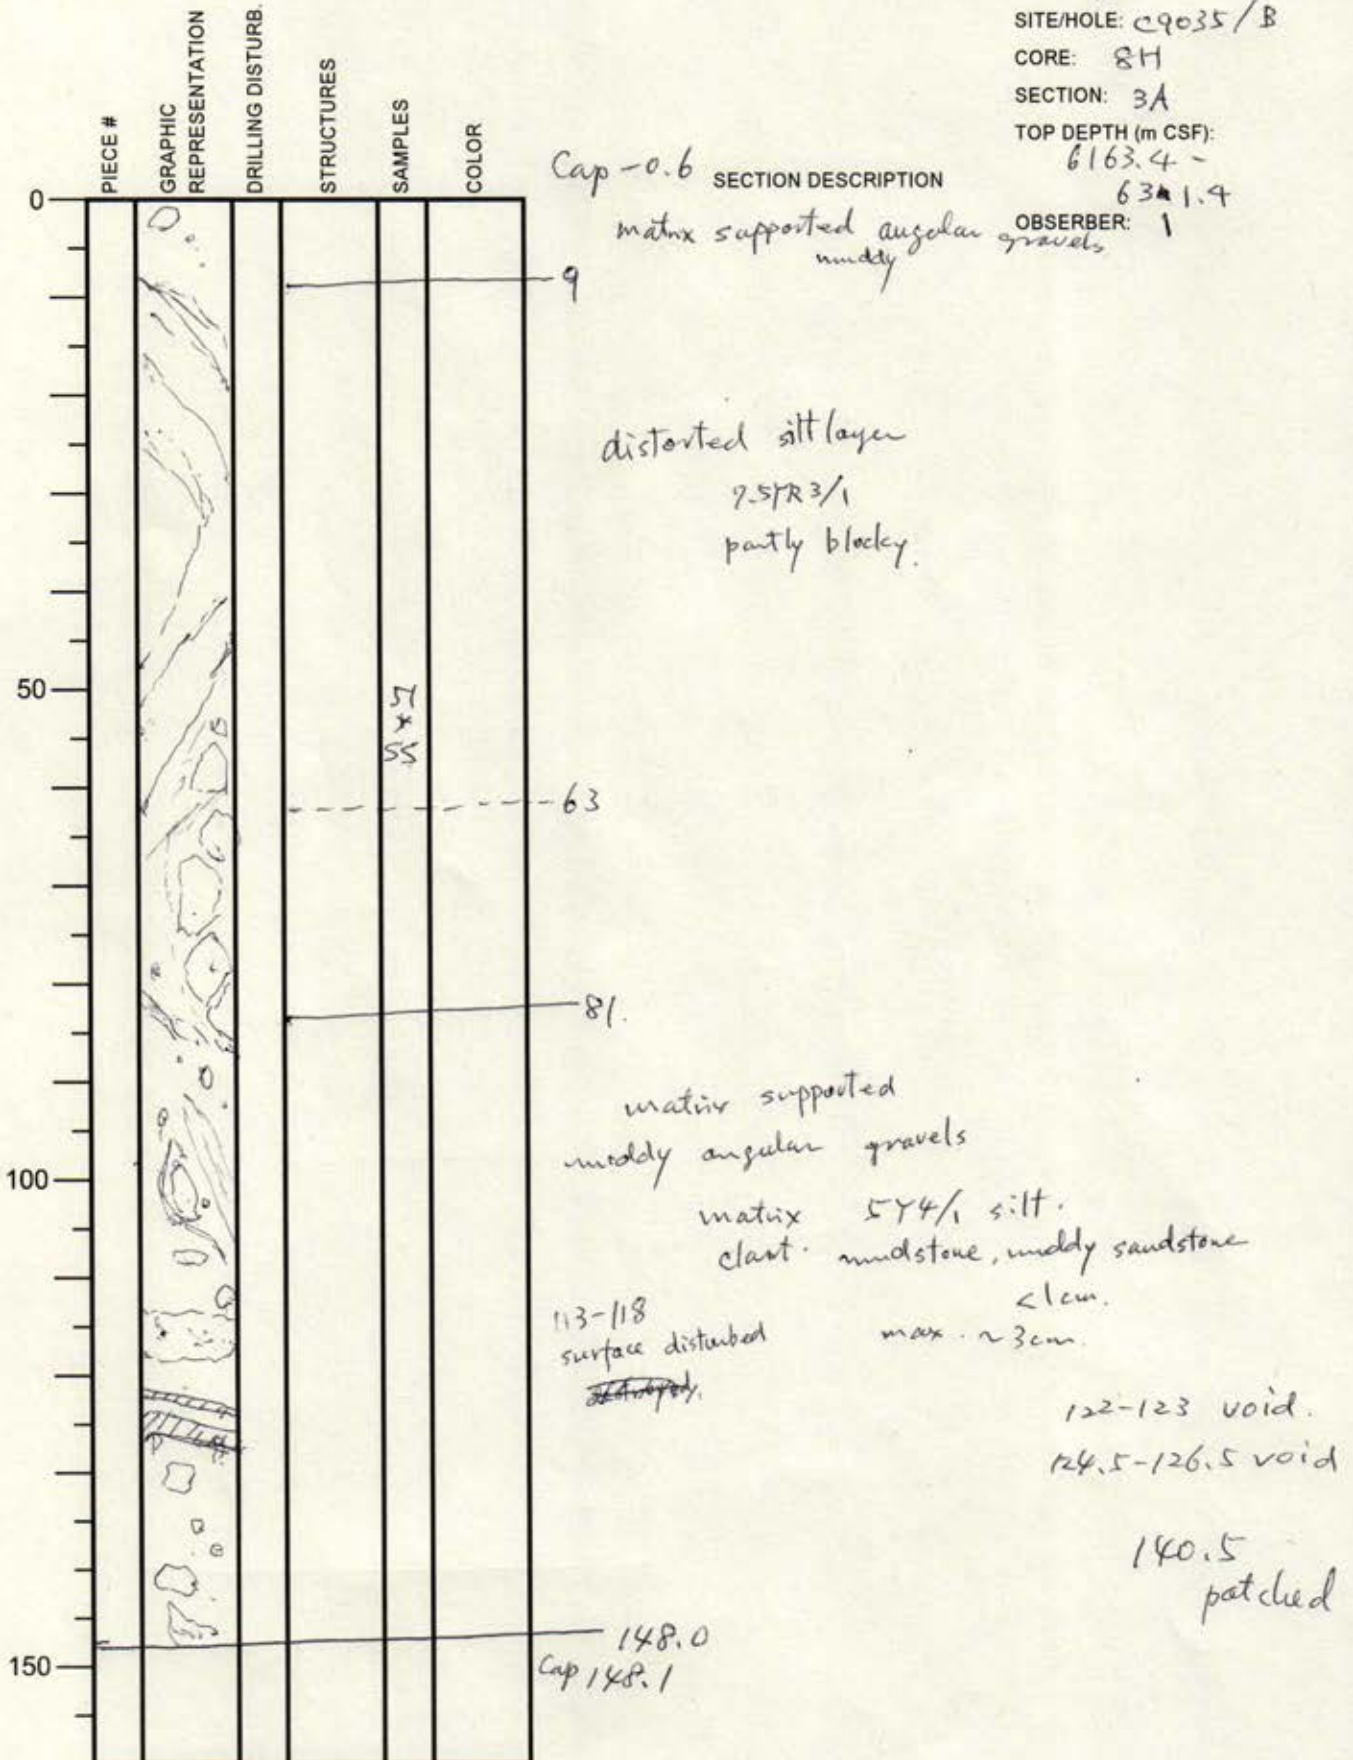 SITE/HOLE: C9035/B
CORE: 8H
SECTION: 3A
TOP DEPTH (m CSF):
6163.4 -
631.4
OBSERBER: 1
PIECE #
GRAPHIC REPRESENTATION
DRILLING DISTURB.
STRUCTURES
SAMPLES
COLOR
Cap -0.6 SECTION DESCRIPTION
0
matrix supported angular gravels
muddy
9
distorted silt layer
7.5YR 3/1
partly blocky.
50
51
*
SS
63
81.
matrix supported
muddy angular gravels
100
matrix 5Y4/1 silt.
clast. mudstone, muddy sandstone
<1cm.
113-118
surface disturbed
max. ~3cm.
122-123 void.
124.5-126.5 void
140.5
patched
148.0
150
Cap 148.1